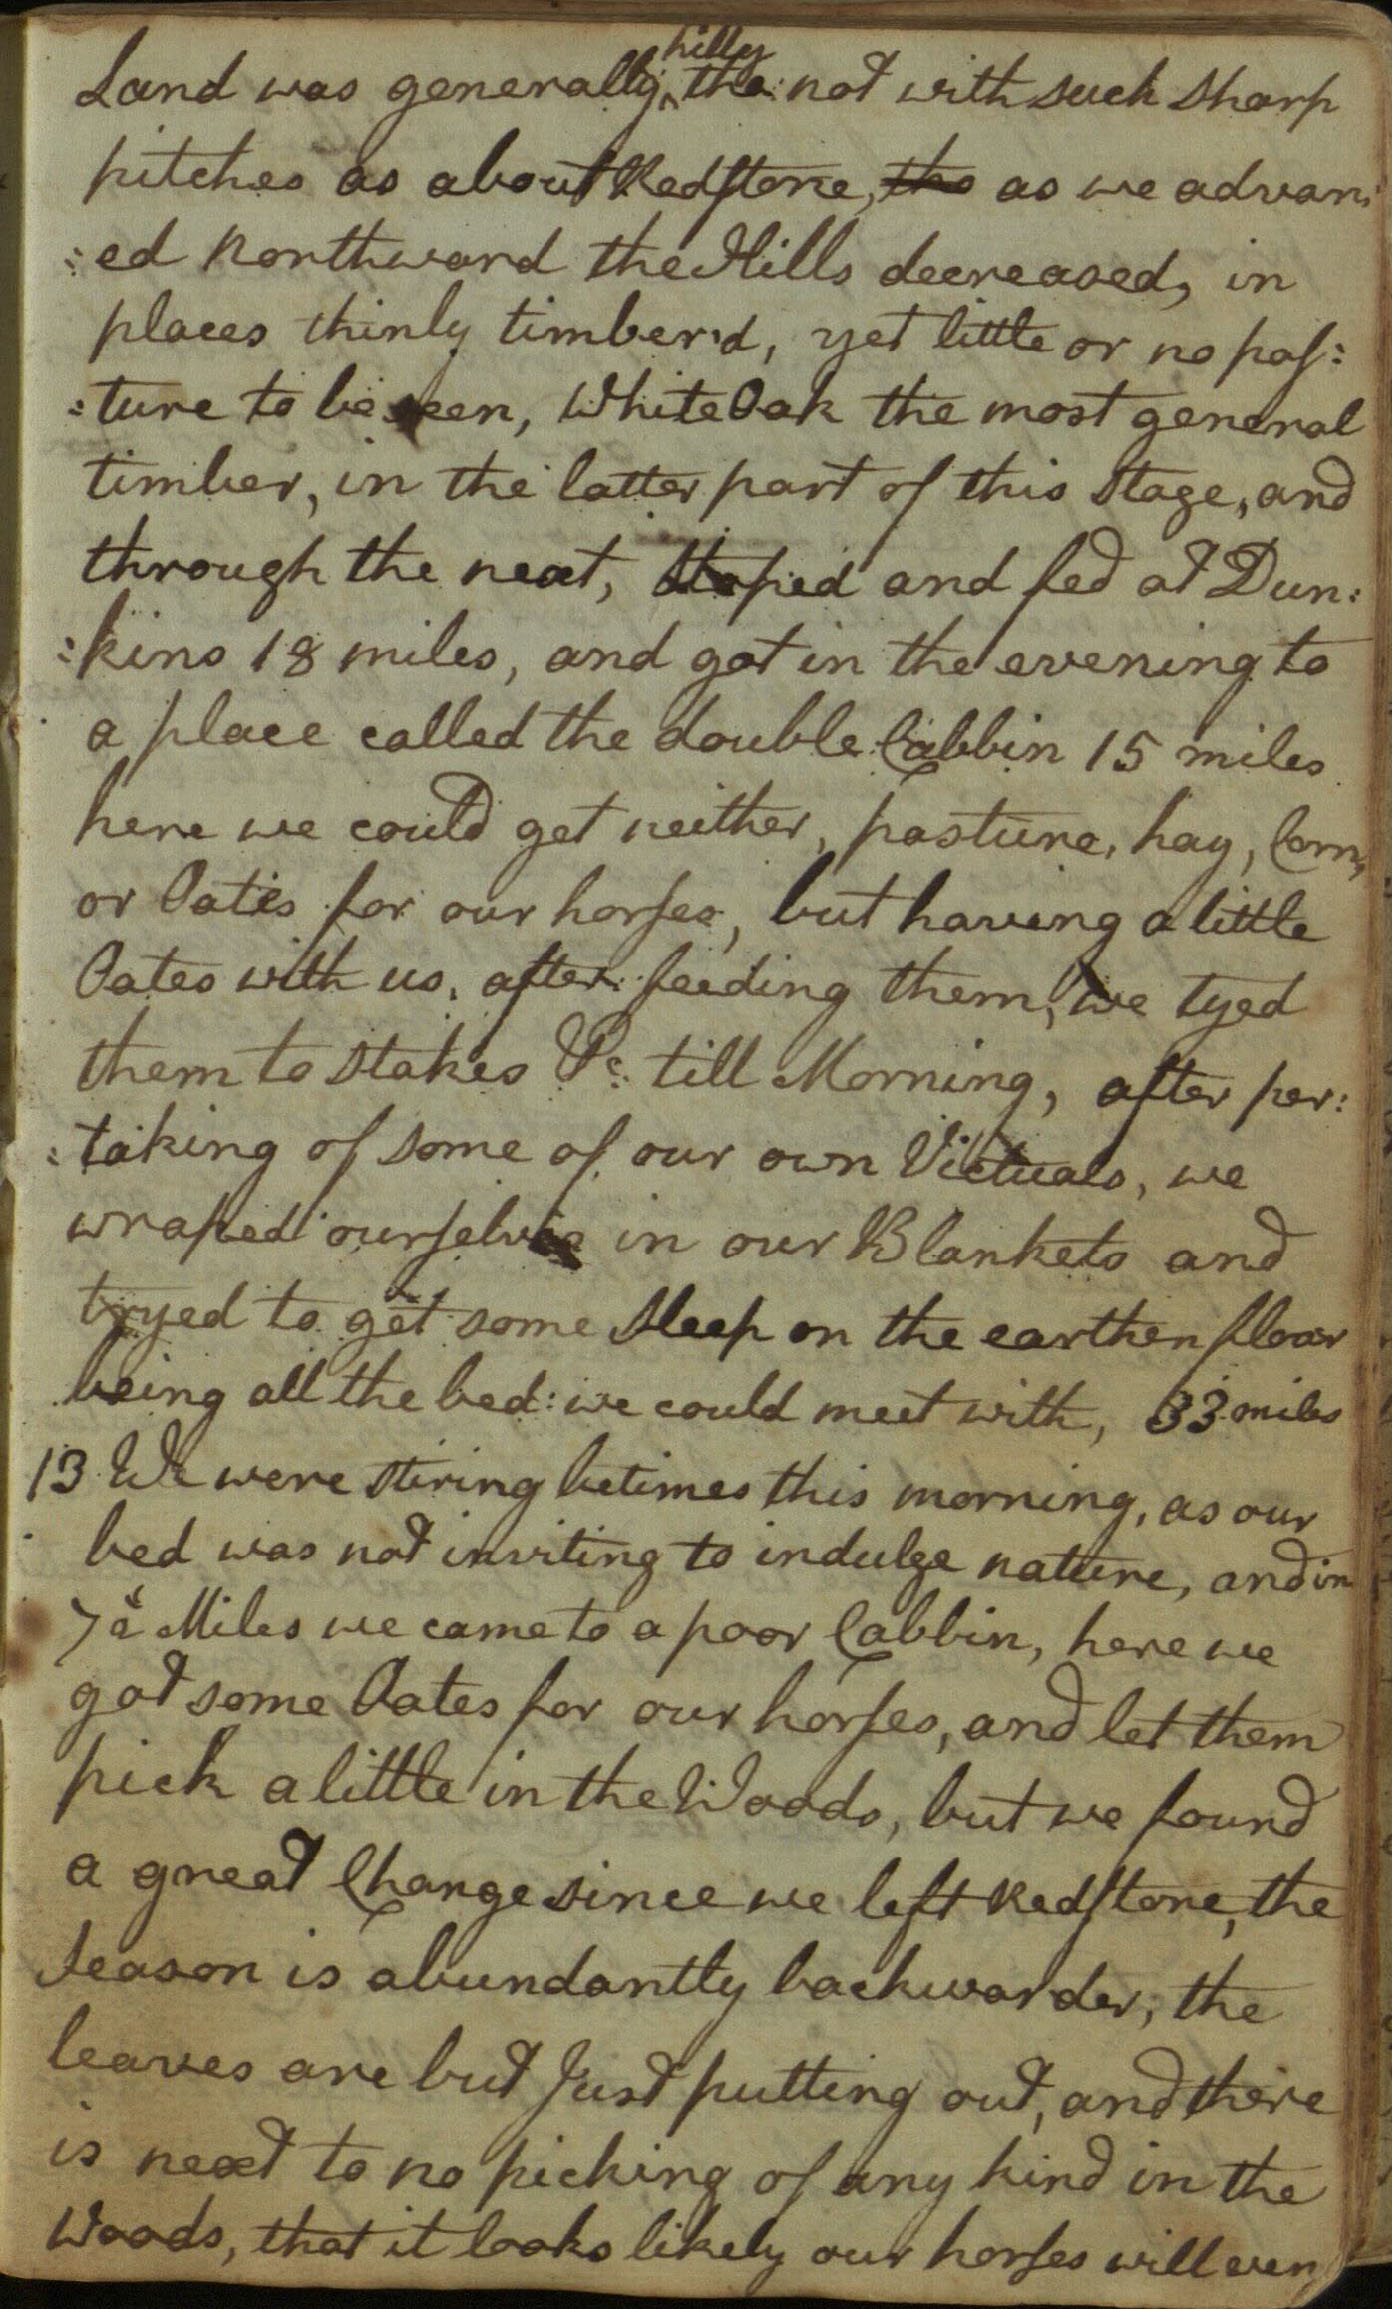 Land was generally ^hilly tho: not with such sharp
pitches as about Redstone, tho as we advan:
:ed Northward the Hills decreased, in
places thinly timber'd, yet little or no pas:
:ture to be seen, White Oak the most general
timber, in the latter part of this Stage, and
through the next, Stoped and fed at Dun:
:kins 18 miles, and got in the evening to
a place called the double Cabbin 15 miles
here we could get neither, pasture, hay, Corn,
or Oates for our horses, but having a little
Oates with us, after feeding them, we tyed
them to Stakes &c: till Morning, after per:
:taking of some of our own Victuals, we
wraped ourselves in our Blankets and
tryed to get some Sleep on the earthen floor
being all the bed: we could meet with, 33 miles
13 We were stiring betimes this morning, as our
bed was not inviting to indulge nature, and in
7 Miles we came to a poor Cabbin, here we
got some Oates for our horses, and let them
pick a little in the Woods, but we found
a great Change since we left Redstone, the
Season is abundantly backwarder, the
leaves are but Just putting out, and there
is next to no picking of any kind in the
Woods, that it looks likely our horses will even